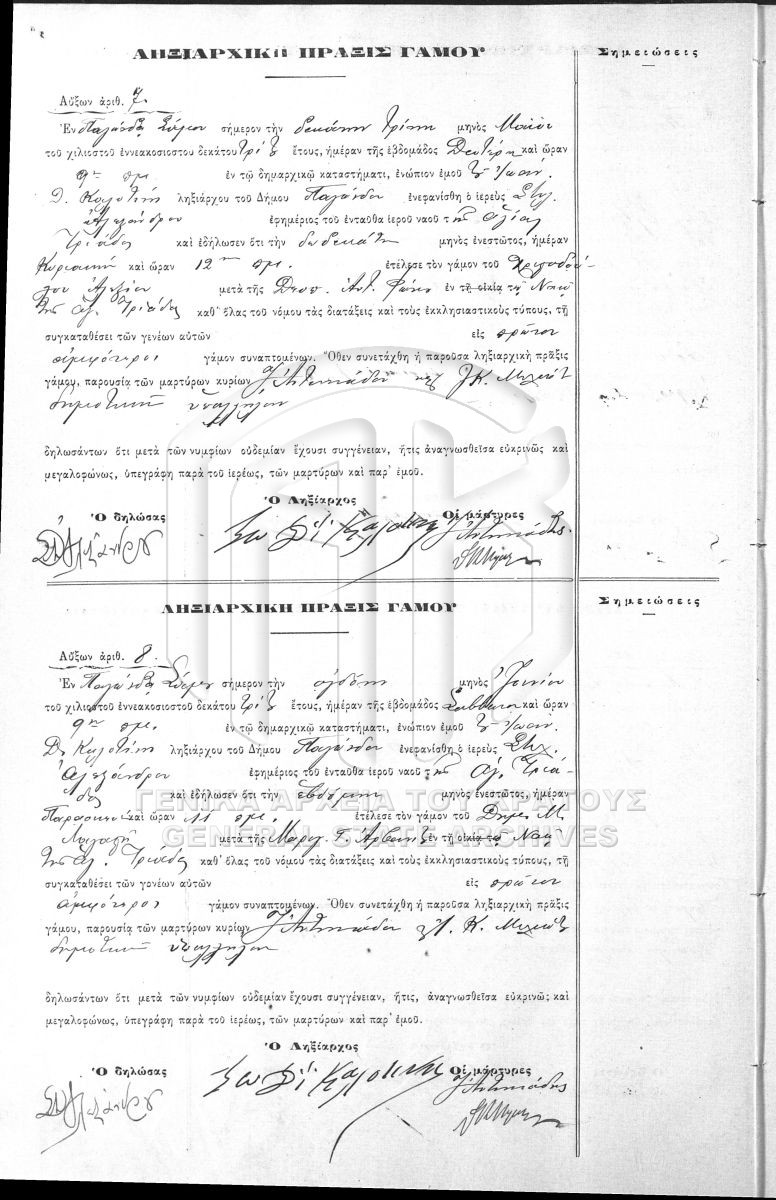 ΛΗΞΙΑΡΧΙΚΗ ΠΡΑΞΙΣ ΓΑΜΟΥ
Σημειώσεις
Αὔξων ἀριθ. 7.
Ἐν Παγώνδᾳ Σάμου σήμερον τὴν δεκάτην τρίτην μηνὸς Μαΐου
τοῦ χιλιοστοῦ ἐννεακοσιοστοῦ δεκάτου τρίτου ἔτους, ἡμέραν τῆς ἑβδομάδος Δευτέραν καὶ ὥραν
9ην πμ. ἐν τῷ δημαρχικῷ καταστήματι, ἐνώπιον ἐμοῦ τοῦ Ἰωάν.
Δ. Καλοτίνη ληξιάρχου τοῦ Δήμου Παγώνδου ἐνεφανίσθη ὁ ἱερεὺς Στυλ.
Ἀλεξάνδρου ἐφημέριος τοῦ ἐνταῦθα ἱεροῦ ναοῦ τῆς Ἁγίας
Τριάδος καὶ ἐδήλωσεν ὅτι τὴν δωδεκάτην μηνὸς ἐνεστῶτος, ἡμέραν
Κυριακὴν καὶ ὥραν 12ην πμ. ἐτέλεσε τὸν γάμον τοῦ
μετὰ τῆς Δεσπ. Ἀντ. ἐν τῇ οἰκίᾳ τῷ Ναῷ
τῆς Ἁγ. Τριάδος καθ' ὅλας τοῦ νόμου τὰς διατάξεις καὶ τοὺς ἐκκλησιαστικοὺς τύπους, τῇ
συγκαταθέσει τῶν γονέων αὐτῶν εἰς πρῶτον
ἀμφότεροι γάμον συναπτομένων. Ὅθεν συνετάχθη ἡ παροῦσα ληξιαρχικὴ πρᾶξις
γάμου, παρουσίᾳ τῶν μαρτύρων κυρίων Ἀντωνιάδου καὶ Κ.
δημοτικῶν ὑπαλλήλων
δηλωσάντων ὅτι μετὰ τῶν νυμφίων οὐδεμίαν ἔχουσι συγγένειαν, ἥτις ἀναγνωσθεῖσα εὐκρινῶς καὶ
μεγαλοφώνως, ὑπεγράφη παρὰ τοῦ ἱερέως, τῶν μαρτύρων καὶ παρ' ἐμοῦ.
Ὁ Ληξίαρχος
Ὁ δηλώσας Οἱ μάρτυρες
ΛΗΞΙΑΡΧΙΚΗ ΠΡΑΞΙΣ ΓΑΜΟΥ
Σημειώσεις
Αὔξων ἀριθ. 8.
Ἐν Παγώνδᾳ Σάμου σήμερον τὴν ὀγδόην μηνὸς Ἰουνίου
τοῦ χιλιοστοῦ ἐννεακοσιοστοῦ δεκάτου τρίτου ἔτους, ἡμέραν τῆς ἑβδομάδος Σάββατον καὶ ὥραν
9ην πμ. ἐν τῷ δημαρχικῷ καταστήματι, ἐνώπιον ἐμοῦ τοῦ Ἰωάν.
Δ. Καλοτίνη ληξιάρχου τοῦ Δήμου Παγώνδου ἐνεφανίσθη ὁ ἱερεὺς Στυλ.
Ἀλεξάνδρου ἐφημέριος τοῦ ἐνταῦθα ἱεροῦ ναοῦ τῆς Ἁγ. Τριά-
δος καὶ ἐδήλωσεν ὅτι τὴν ἑβδόμην μηνὸς ἐνεστῶτος, ἡμέραν
Παρασκευὴν καὶ ὥραν 11 πμ. ἐτέλεσε τὸν γάμον τοῦ Δημ. Μ.
μετὰ τῆς Μαρι. Γ. ἐν τῇ οἰκίᾳ τῷ Ναῷ
τῆς Ἁγ. Τριάδος καθ' ὅλας τοῦ νόμου τὰς διατάξεις καὶ τοὺς ἐκκλησιαστικοὺς τύπους, τῇ
συγκαταθέσει τῶν γονέων αὐτῶν εἰς πρῶτον
ἀμφότεροι γάμον συναπτομένων. Ὅθεν συνετάχθη ἡ παροῦσα ληξιαρχικὴ πρᾶξις
γάμου, παρουσίᾳ τῶν μαρτύρων κυρίων Ἀντωνιάδου Κ.
δημοτικῶν ὑπαλλήλων
δηλωσάντων ὅτι μετὰ τῶν νυμφίων οὐδεμίαν ἔχουσι συγγένειαν, ἥτις, ἀναγνωσθεῖσα εὐκρινῶς καὶ
μεγαλοφώνως, ὑπεγράφη παρὰ τοῦ ἱερέως, τῶν μαρτύρων καὶ παρ' ἐμοῦ.
Ὁ Ληξίαρχος
Ὁ δηλώσας Οἱ μάρτυρες
ΓΕΝΙΚΑ ΑΡΧΕΙΑ ΤΟΥ ΚΡΑΤΟΥΣ
GENERAL STATE ARCHIVES